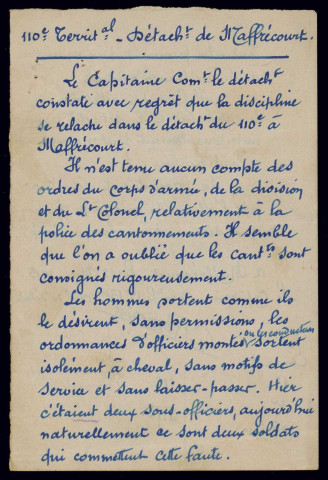 110e Territal - Détacht de Maffrécourt.
Le Capitaine Comt le détacht
constate avec regret que la discipline
se relache dans le détacht du 110e à
Maffrécourt.
Il n'est tenu aucun compte des
ordres du Corps d'armée, de la division
et du Lt Colonel, relativement à la
police des cantonnements. Il semble
que l'on a oublié que les cantts sont
consignés rigoureusement.
Les hommes sortent comme ils
le désirent, sans permissions, les
ordonnances d'officiers montés ou les conducteurs sortent
isolément, à cheval, sans motifs de
service et sans laisser-passer. Hier
c'étaient deux sous-officiers, aujourd'hui
naturellement ce sont deux soldats
qui commettent cette faute.